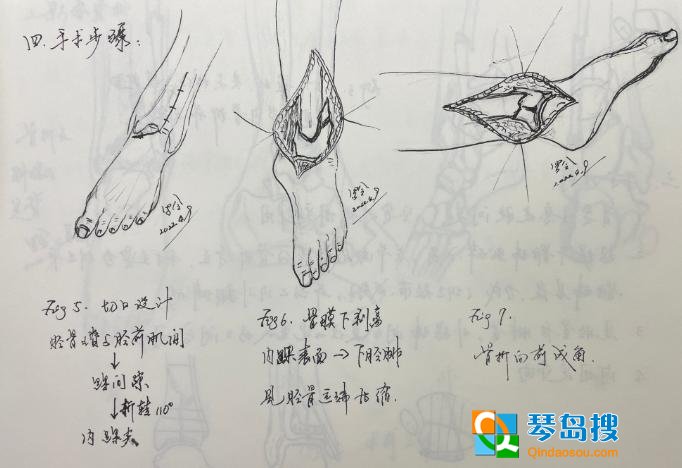 四. 手术步骤:
罗令
2022.4.9
罗令
2022.4.9
罗令
2022.4.9
Fig 5. 切口设计
胫骨嵴与胫前肌间
↓
踝间隙
↓折转110°
内踝尖
Fig 6. 骨膜下剥离
内踝表面→下胫腓
见胫骨远端
Fig 7.
骨折向前成角.
琴岛搜
Qindaosou.com